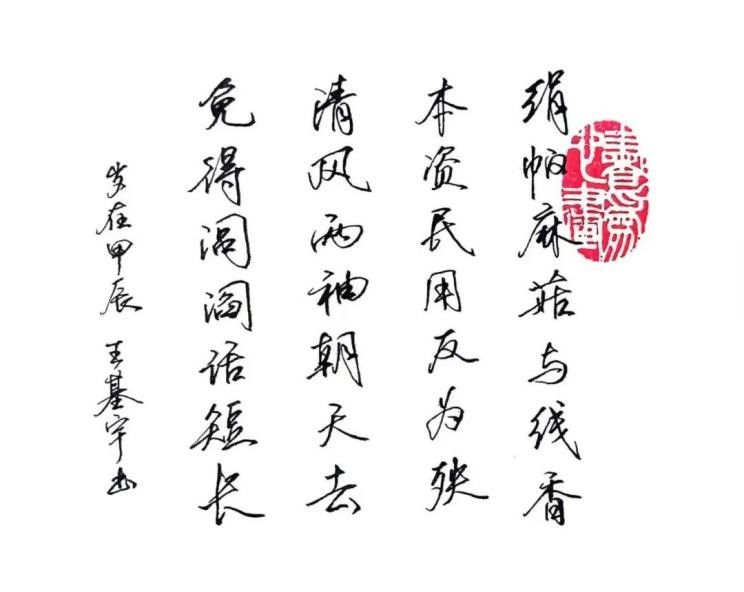 绢帕麻菇与线香
本资民用反为殃
清风两袖朝天去
免得闾阎话短长
岁在甲辰 王基宇书